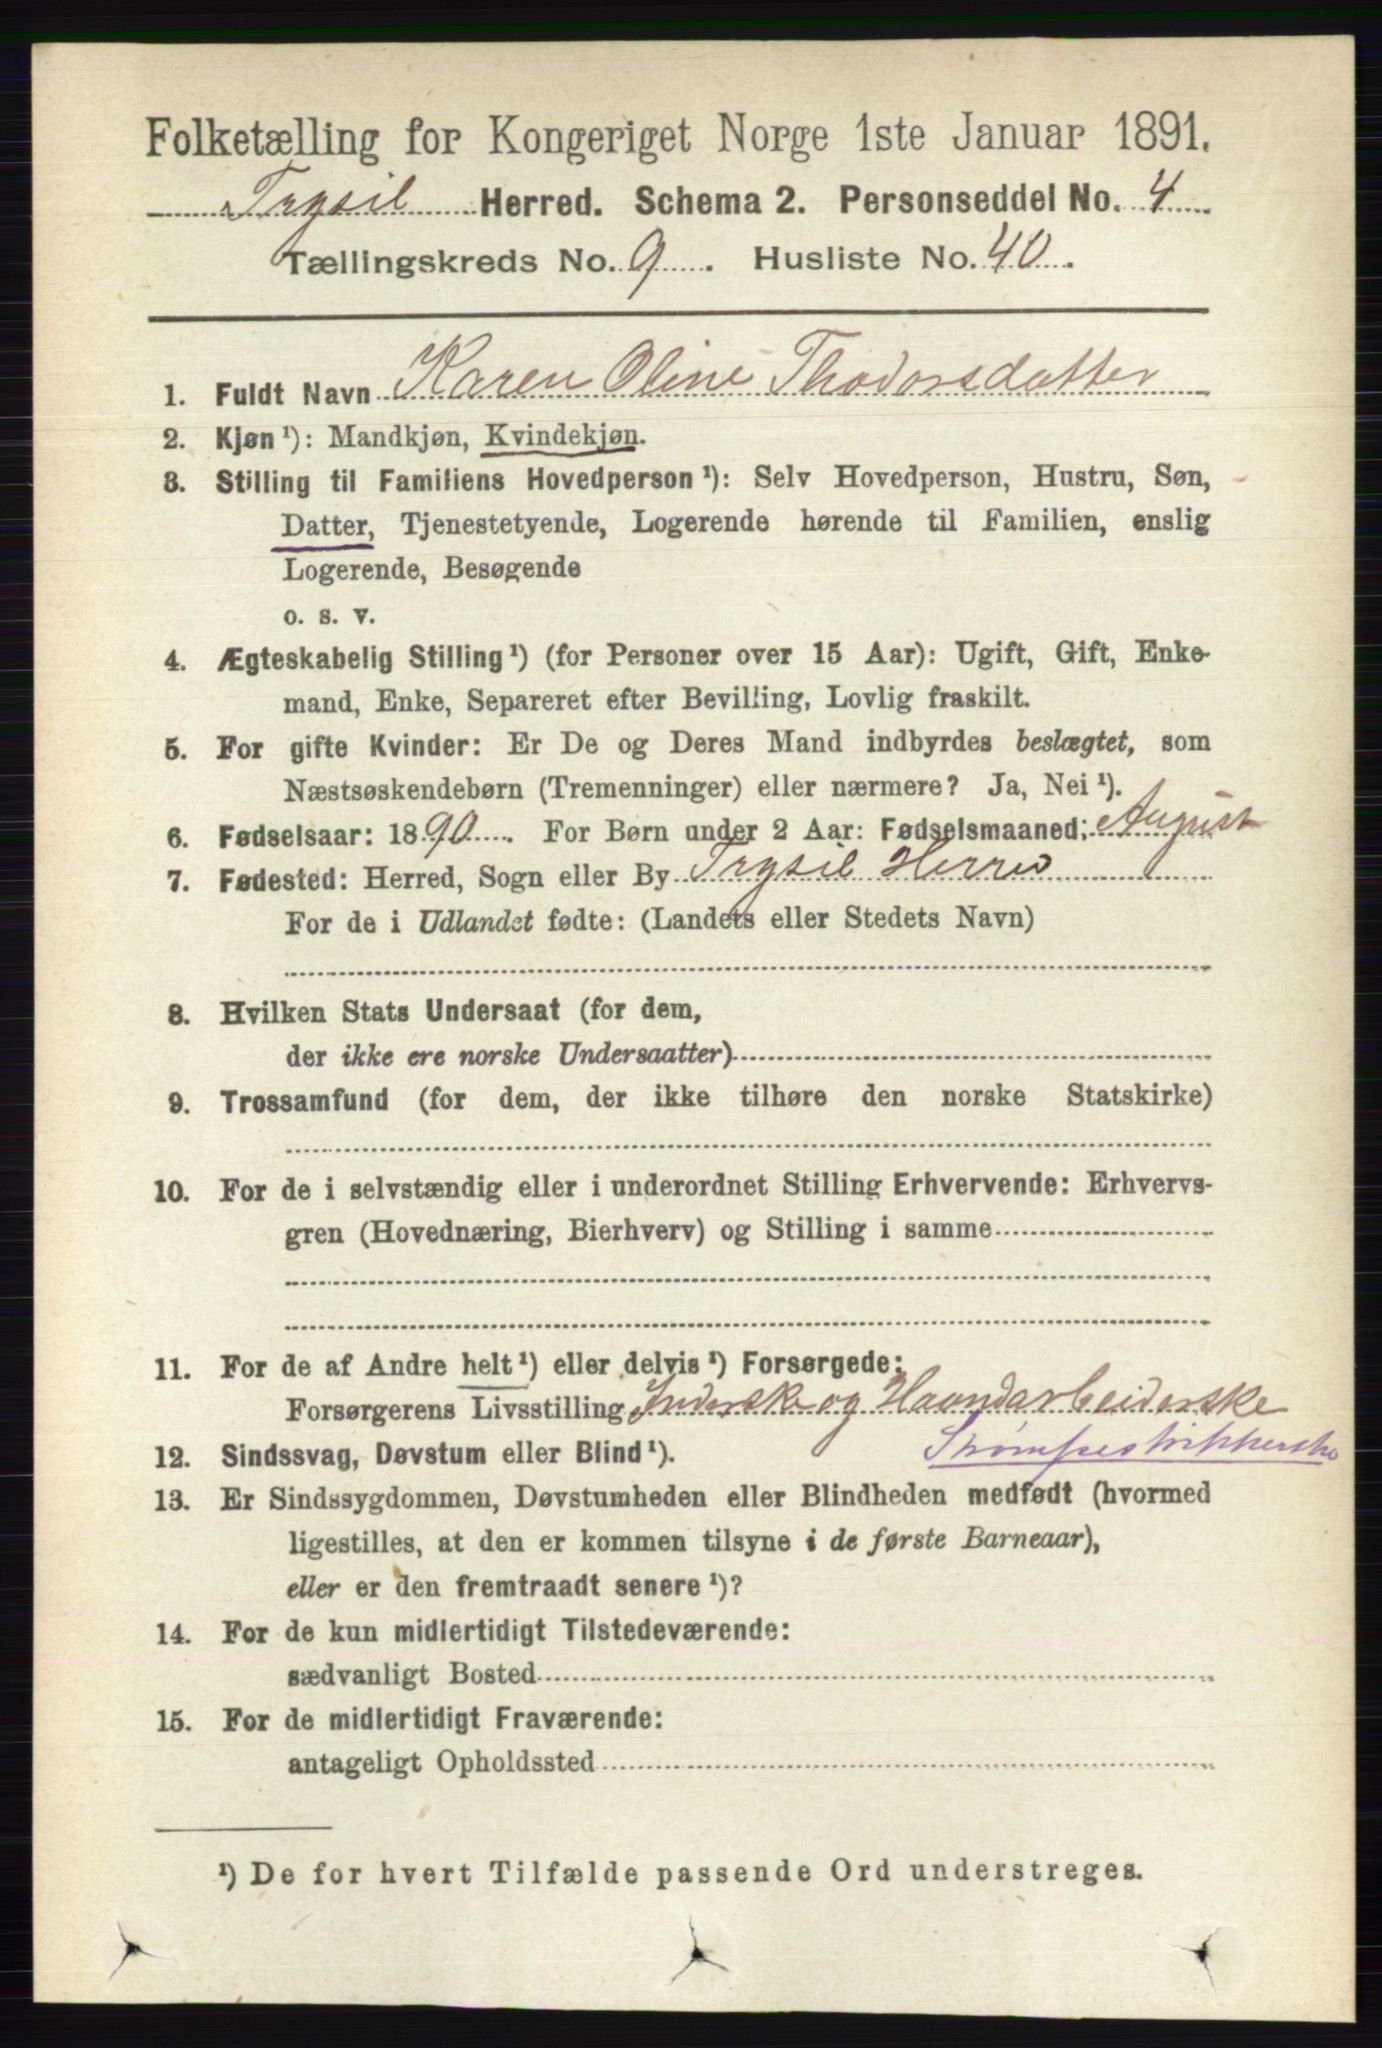 Folketælling for Kongeriget Norge 1ste Januar 1891.
Trysil Herred. Schema 2. Personseddel No. 4
Tællingskreds No. 9. Husliste No. 40.
1. Fuldt Navn Karen Oline Thodorsdatter
2. Kjøn ¹): Mandkjøn, Kvindekjøn.
3. Stilling til Familiens Hovedperson ¹): Selv Hovedperson, Hustru, Søn,
Datter, Tjenestetyende, Logerende hørende til Familien, enslig
Logerende, Besøgende
o. s. v.
4. Ægteskabelig Stilling ¹) (for Personer over 15 Aar): Ugift, Gift, Enke-
mand, Enke, Separeret efter Bevilling, Lovlig fraskilt.
5. For gifte Kvinder: Er De og Deres Mand indbyrdes beslægtet, som
Næstsøskendebørn (Tremenninger) eller nærmere? Ja, Nei ¹).
6. Fødselsaar: 1890. For Børn under 2 Aar: Fødselsmaaned: August
7. Fødested: Herred, Sogn eller By Trysil Herred
For de i Udlandet fødte: (Landets eller Stedets Navn)
8. Hvilken Stats Undersaat (for dem,
der ikke ere norske Undersaatter)
9. Trossamfund (for dem, der ikke tilhøre den norske Statskirke)
10. For de i selvstændig eller i underordnet Stilling Erhvervende: Erhvervs-
gren (Hovednæring, Bierhverv) og Stilling i samme
11. For de af Andre helt ¹) eller delvis ¹) Forsørgede:
Forsørgerens Livsstilling Inderske og Haandarbeiderske
Strømpestrikkerske
12. Sindssvag, Døvstum eller Blind ¹).
13. Er Sindssygdommen, Døvstumheden eller Blindheden medfødt (hvormed
ligestilles, at den er kommen tilsyne i de første Barneaar),
eller er den fremtraadt senere ¹)?
14. For de kun midlertidigt Tilstedeværende:
sædvanligt Bosted
15. For de midlertidigt Fraværende:
antageligt Opholdssted
¹) De for hvert Tilfælde passende Ord understreges.